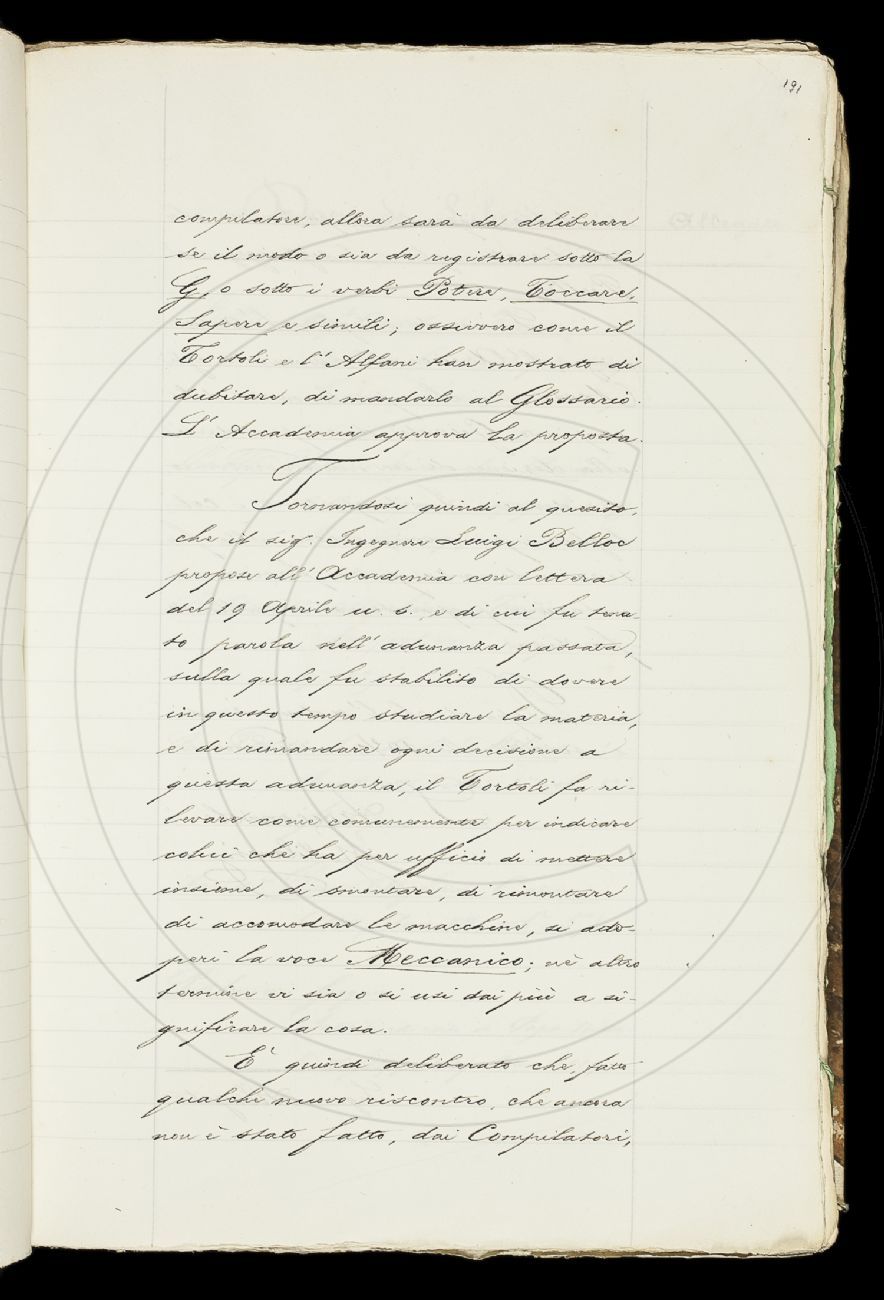 191
compilatore, allora sarà da deliberare
se il modo o sia da registrare sotto la
G, o sotto i verbi Potere, Toccare,
Sapere e simili; ossivvero come il
Tortoli e l'Alfani han mostrato di
dubitare, di mandarlo al Glossario.
L'Accademia approva la proposta.
Tornandosi quindi al quesito,
che il sig. Ingegnere Luigi Belloc
propose all'Accademia con lettera
del 19 Aprile u. s. e di cui fu tenu-
to parola nell'adunanza passata,
sulla quale fu stabilito di dovere
in questo tempo studiare la materia,
e di rimandare ogni decisione a
questa adunanza, il Tortoli fa ri-
levare come comunemente per indicare
colui che ha per ufficio di mettere
insieme, di smontare, di rimontare
di accomodare le macchine, si ado-
peri la voce Meccanico; nè altro
termine vi sia o si usi dai più a si-
gnificare la cosa.
E' quindi deliberato che, fatto
qualche nuovo riscontro, che ancora
non è stato fatto, dai Compilatori,